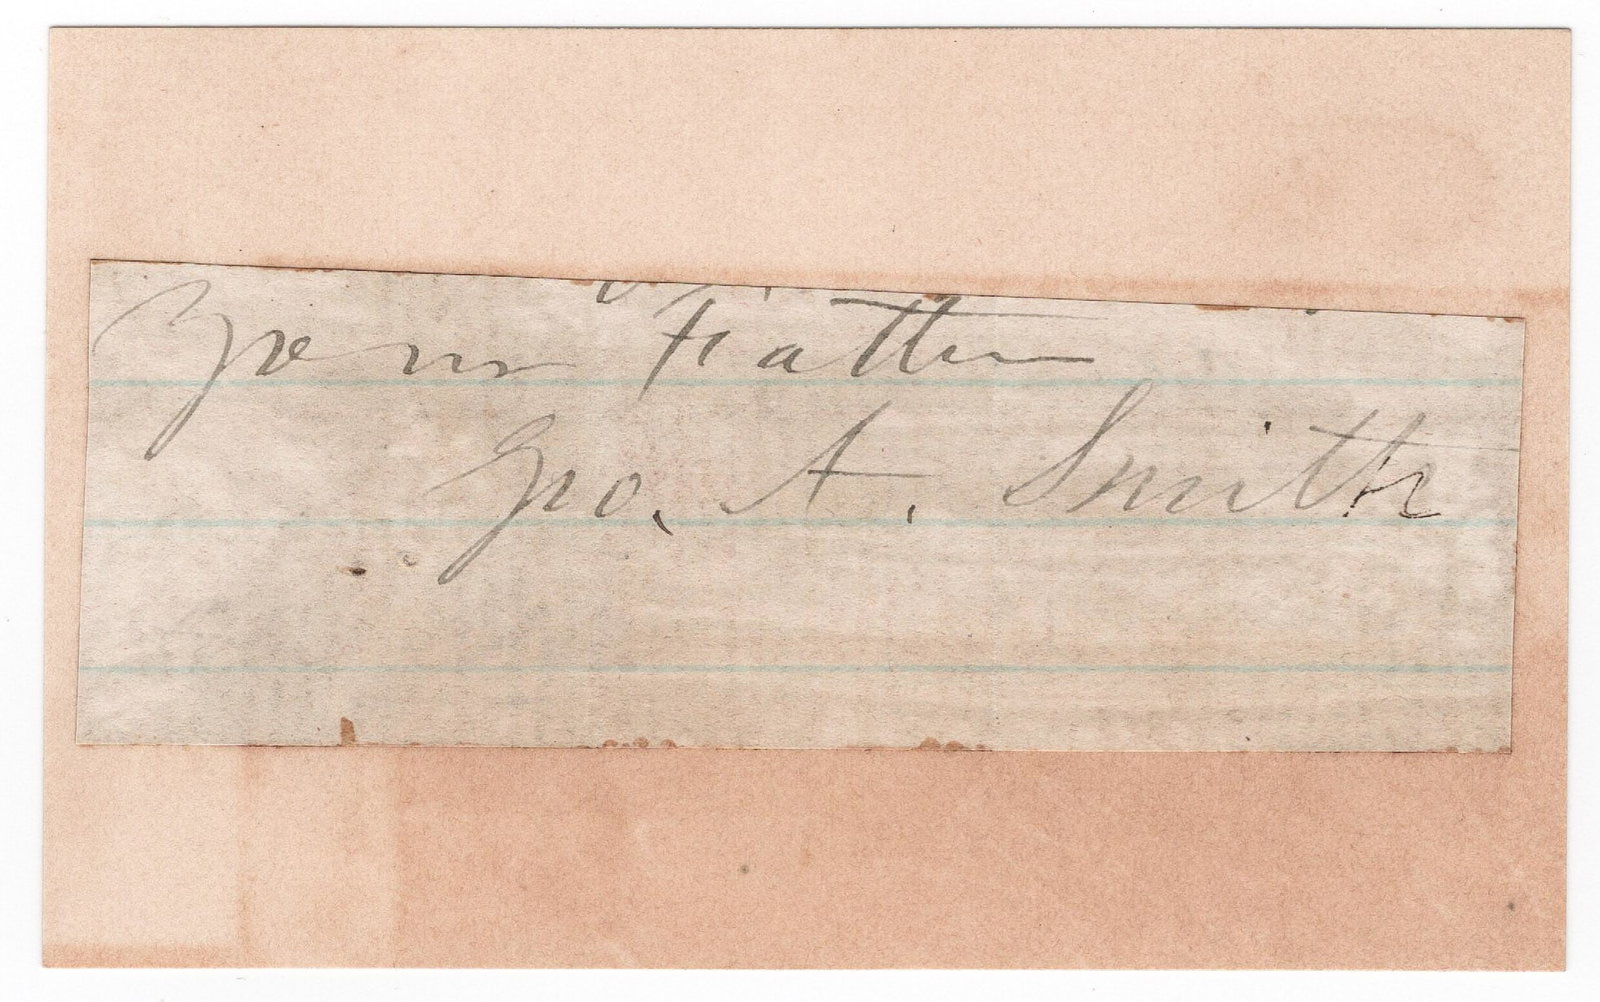 Your Father
Geo. A. Smith